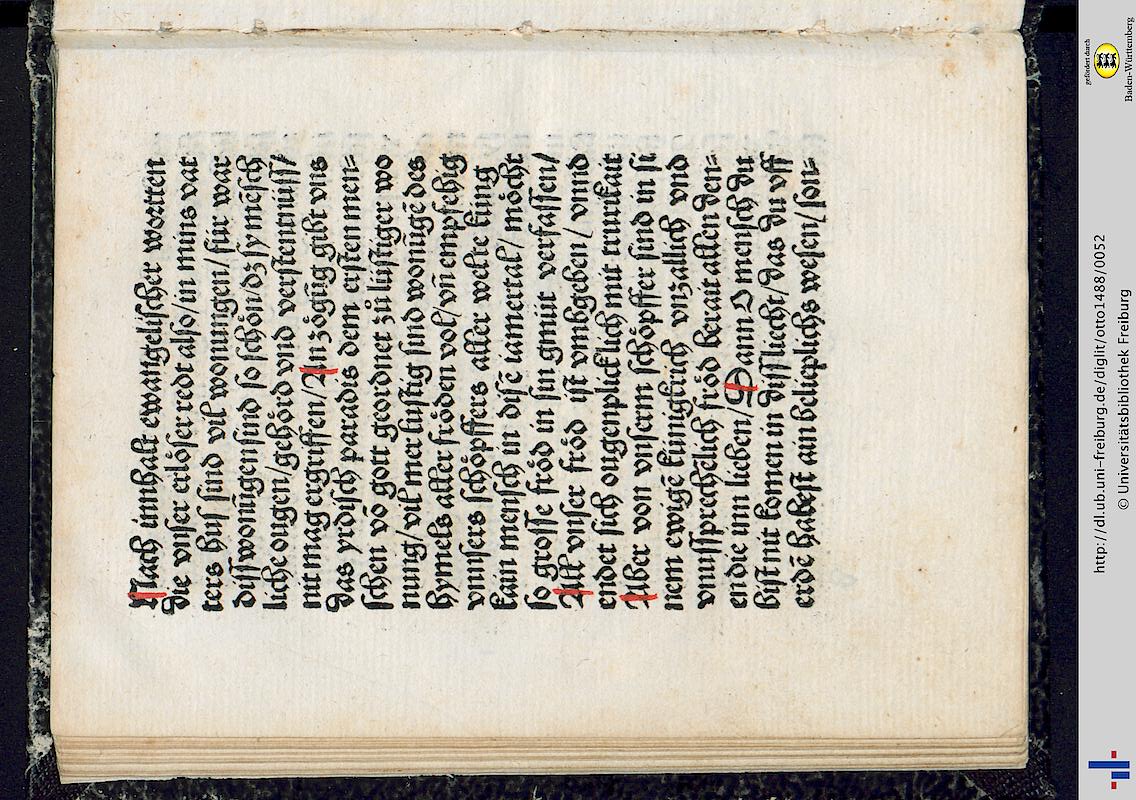 Nach innhalt ewangelischer wortten
die vnser erlöser redt also/in mins vat
ters hus sind vil wonungen/für war
diss wonūgen sind so schön dz sy mēsch
liche ougen/gehörd vnd verstentnüss/
nit mag ergriffen/Anzögūg gibt vns
das yrdisch paradis dem ersten men=
schen vō gott geordnet zů lustiger wo
nung/vil mer lustig sind wonūge des
hymels aller fröden vol/vn̄ empfehig
vnnsers schöpffers aller welte kūng
kain mensch in disē iamertal/möcht
so grosse fröd in sin gmüt verfassen/
All vnser fröd ist vmbgeben/vnnd
endet sich ougenplicklich mit trurikait
Aber von vnserm schöpffer sind in si
nem ewigē künigkrich vnzallich vnd
vnussprechelich fröd berait allen den=
en die inn lieben/Dann O mensch du
bist nit komen in diss liecht/das du vff
erdē habest ain belieplichs wesen/son=
http://dl.ub.uni-freiburg.de/diglit/otto1488/0052
© Universitätsbibliothek Freiburg
gefördert durch
Baden-Württemberg